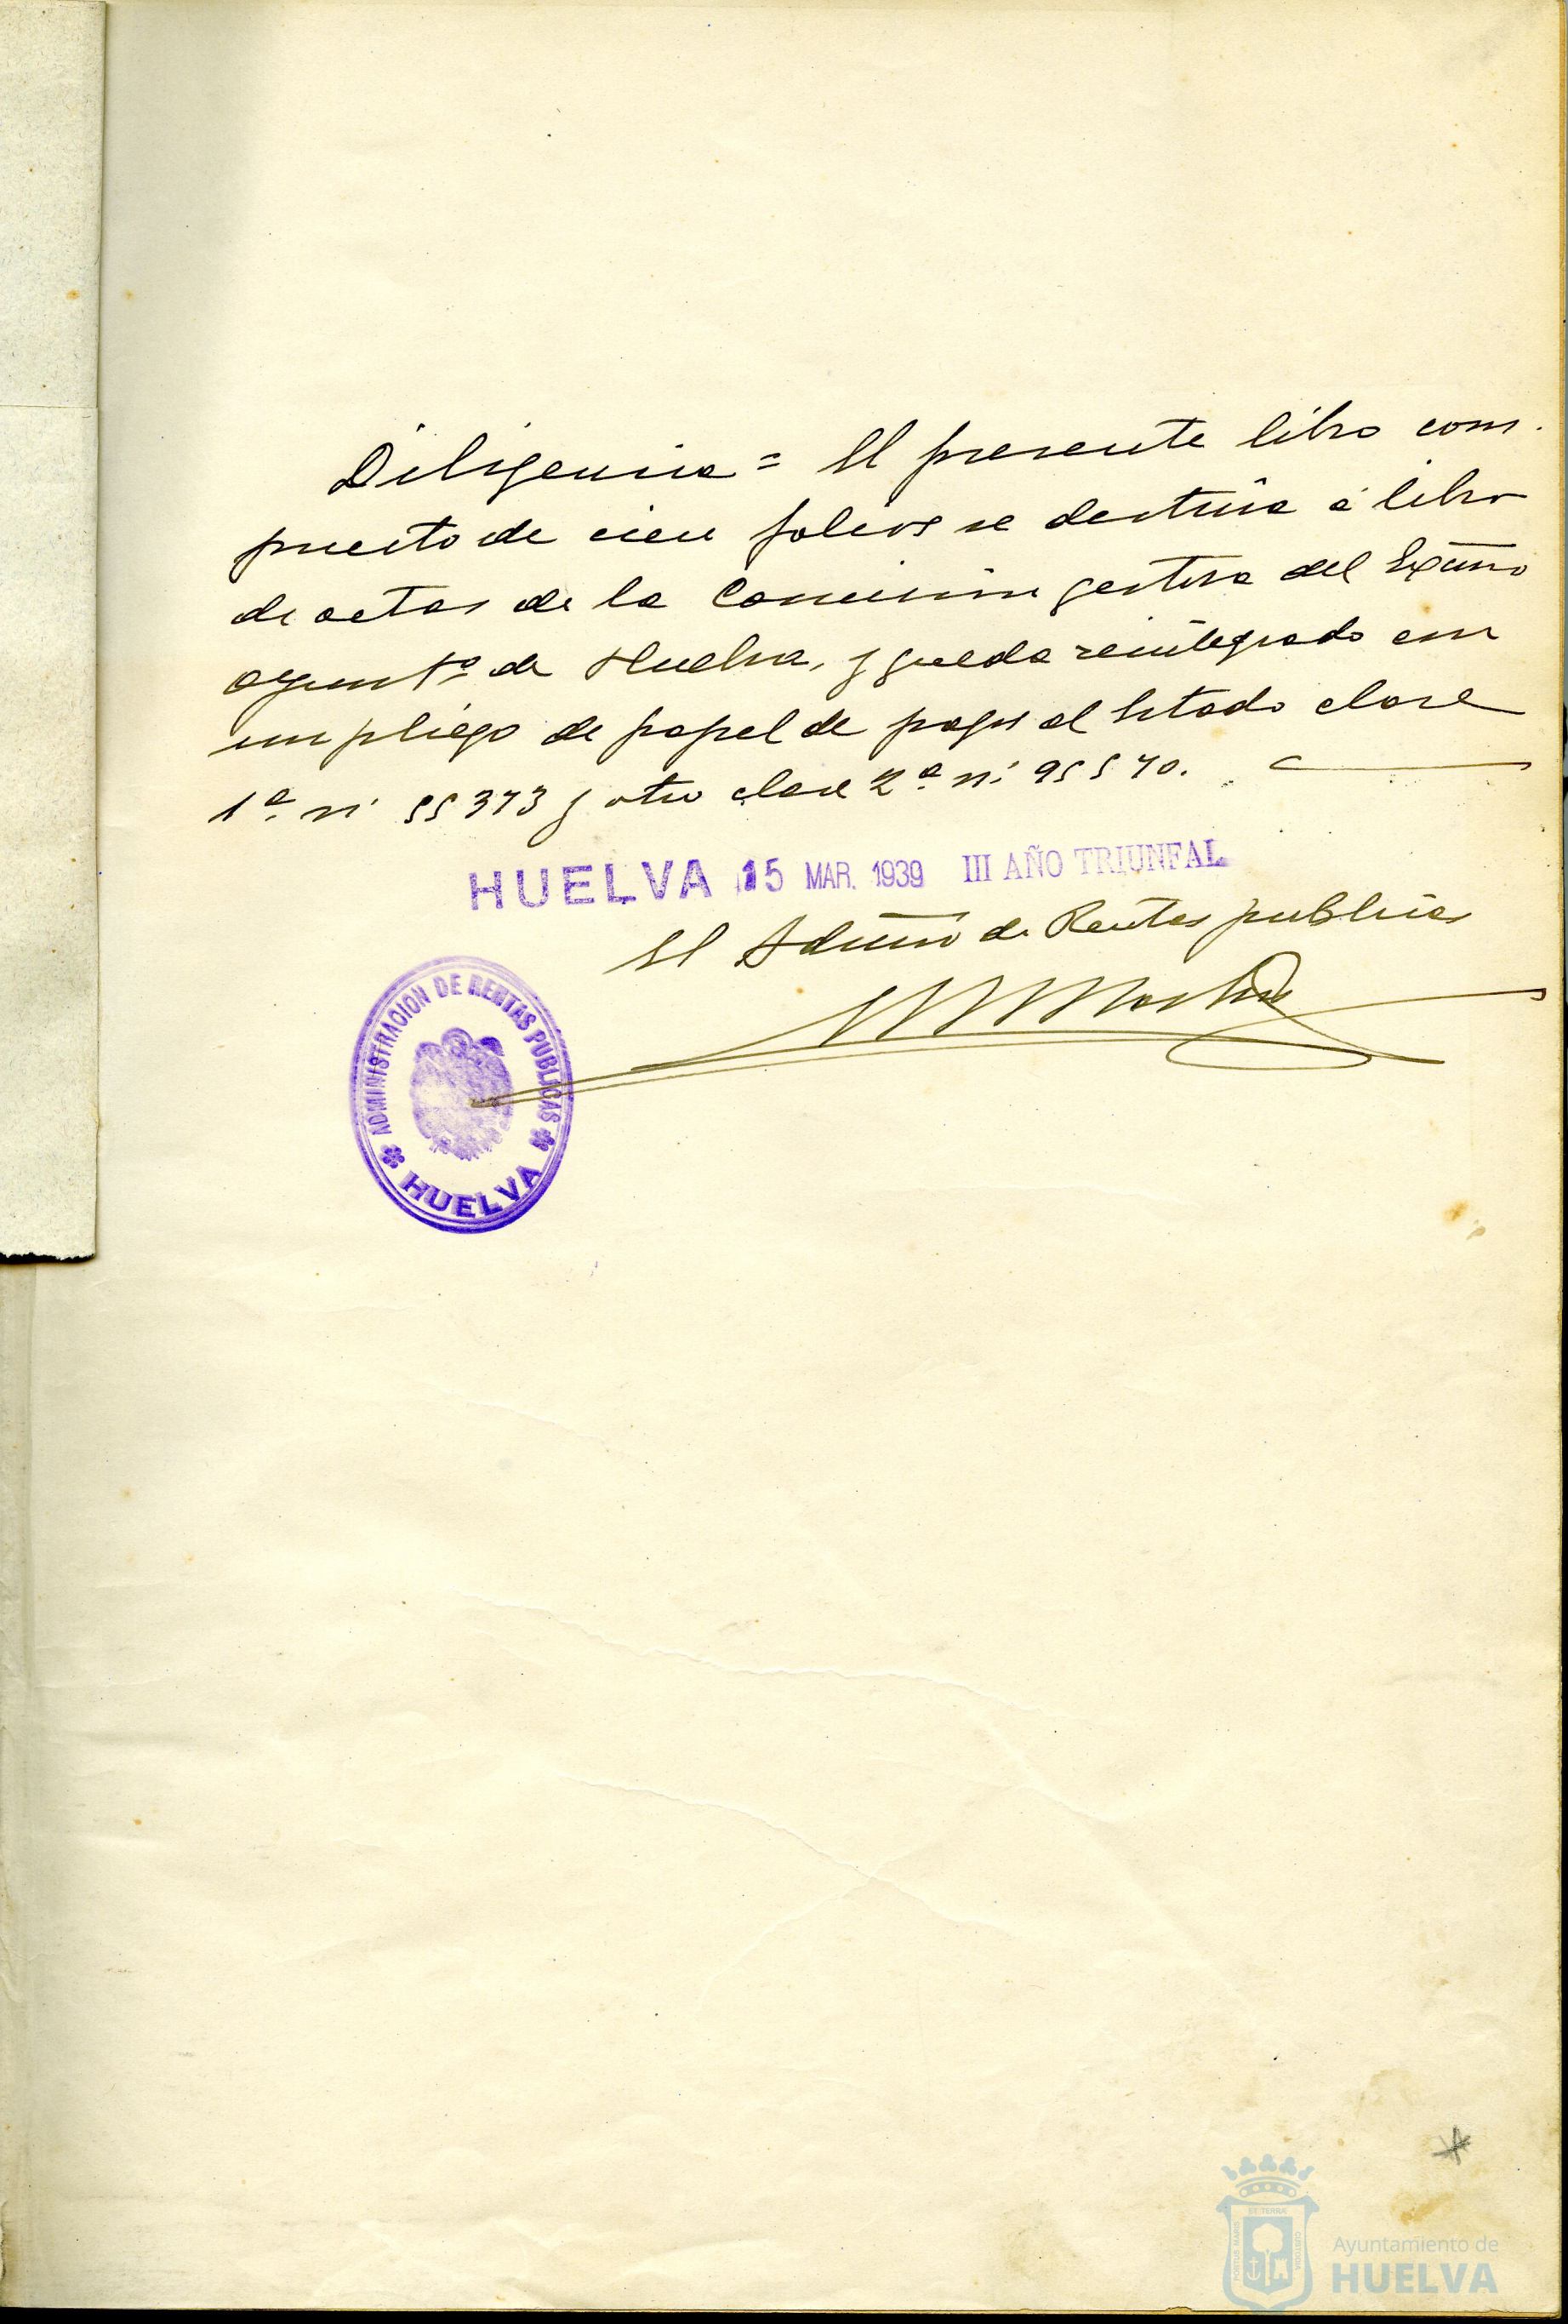 Diligencia = El presente libro com-
puesto de cien folios se destina á libro
de actas de la Comisión gestora del Excmo
Ayuntº de Huelva, y queda reintegrado con
un pliego de papel de pagos al Estado clase
1ª nº 55373 y otro clase 2ª nº 95570.
HUELVA 15 MAR. 1939 III AÑO TRIUNFAL
El Admino de Rentas publicas
ADMINISTRACION DE RENTAS PUBLICAS
HUELVA
Ayuntamiento de
HUELVA